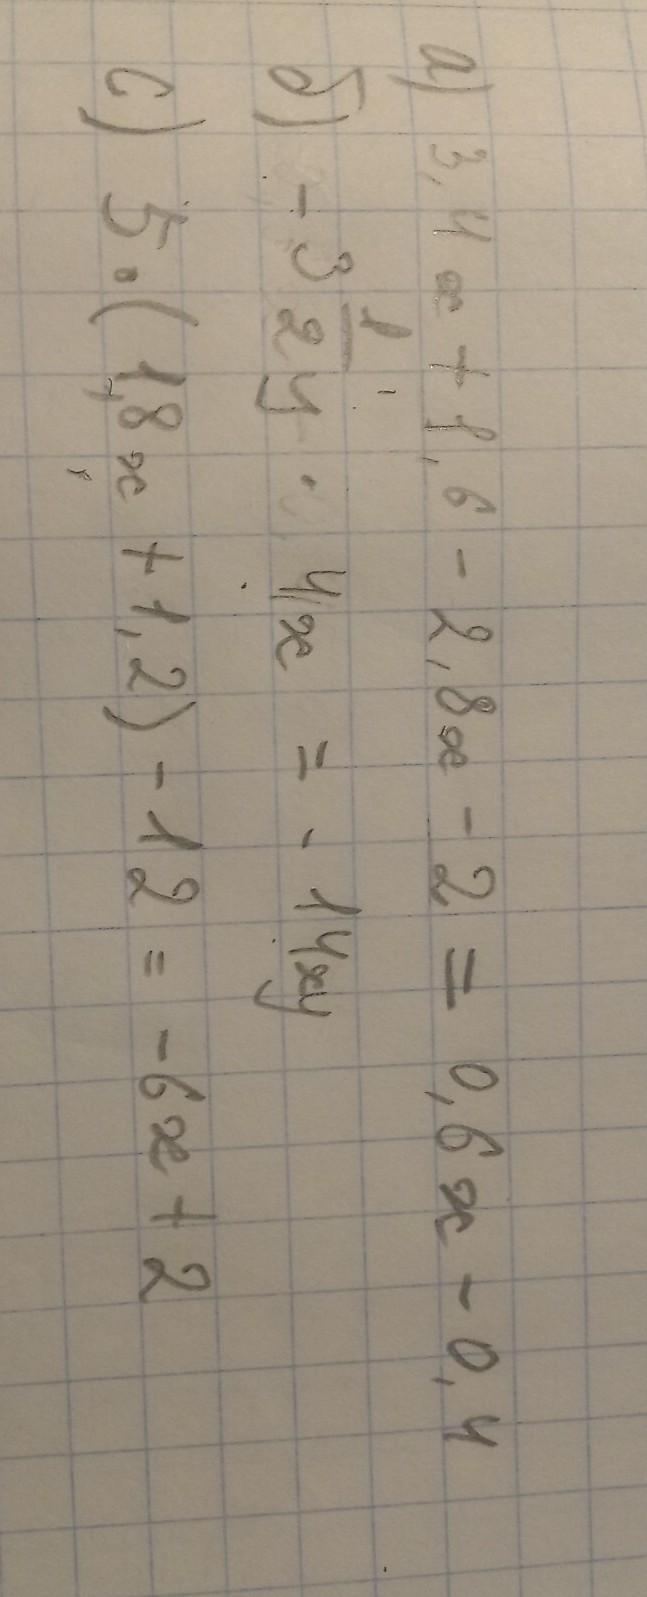 а) 3,4x + 1,6 - 2,8x - 2 = 0,6x - 0,4
б) - 3 1/2 y · 4x = - 14xy
с) 5 · (1,8x + 1,2) - 12 = -6x + 2